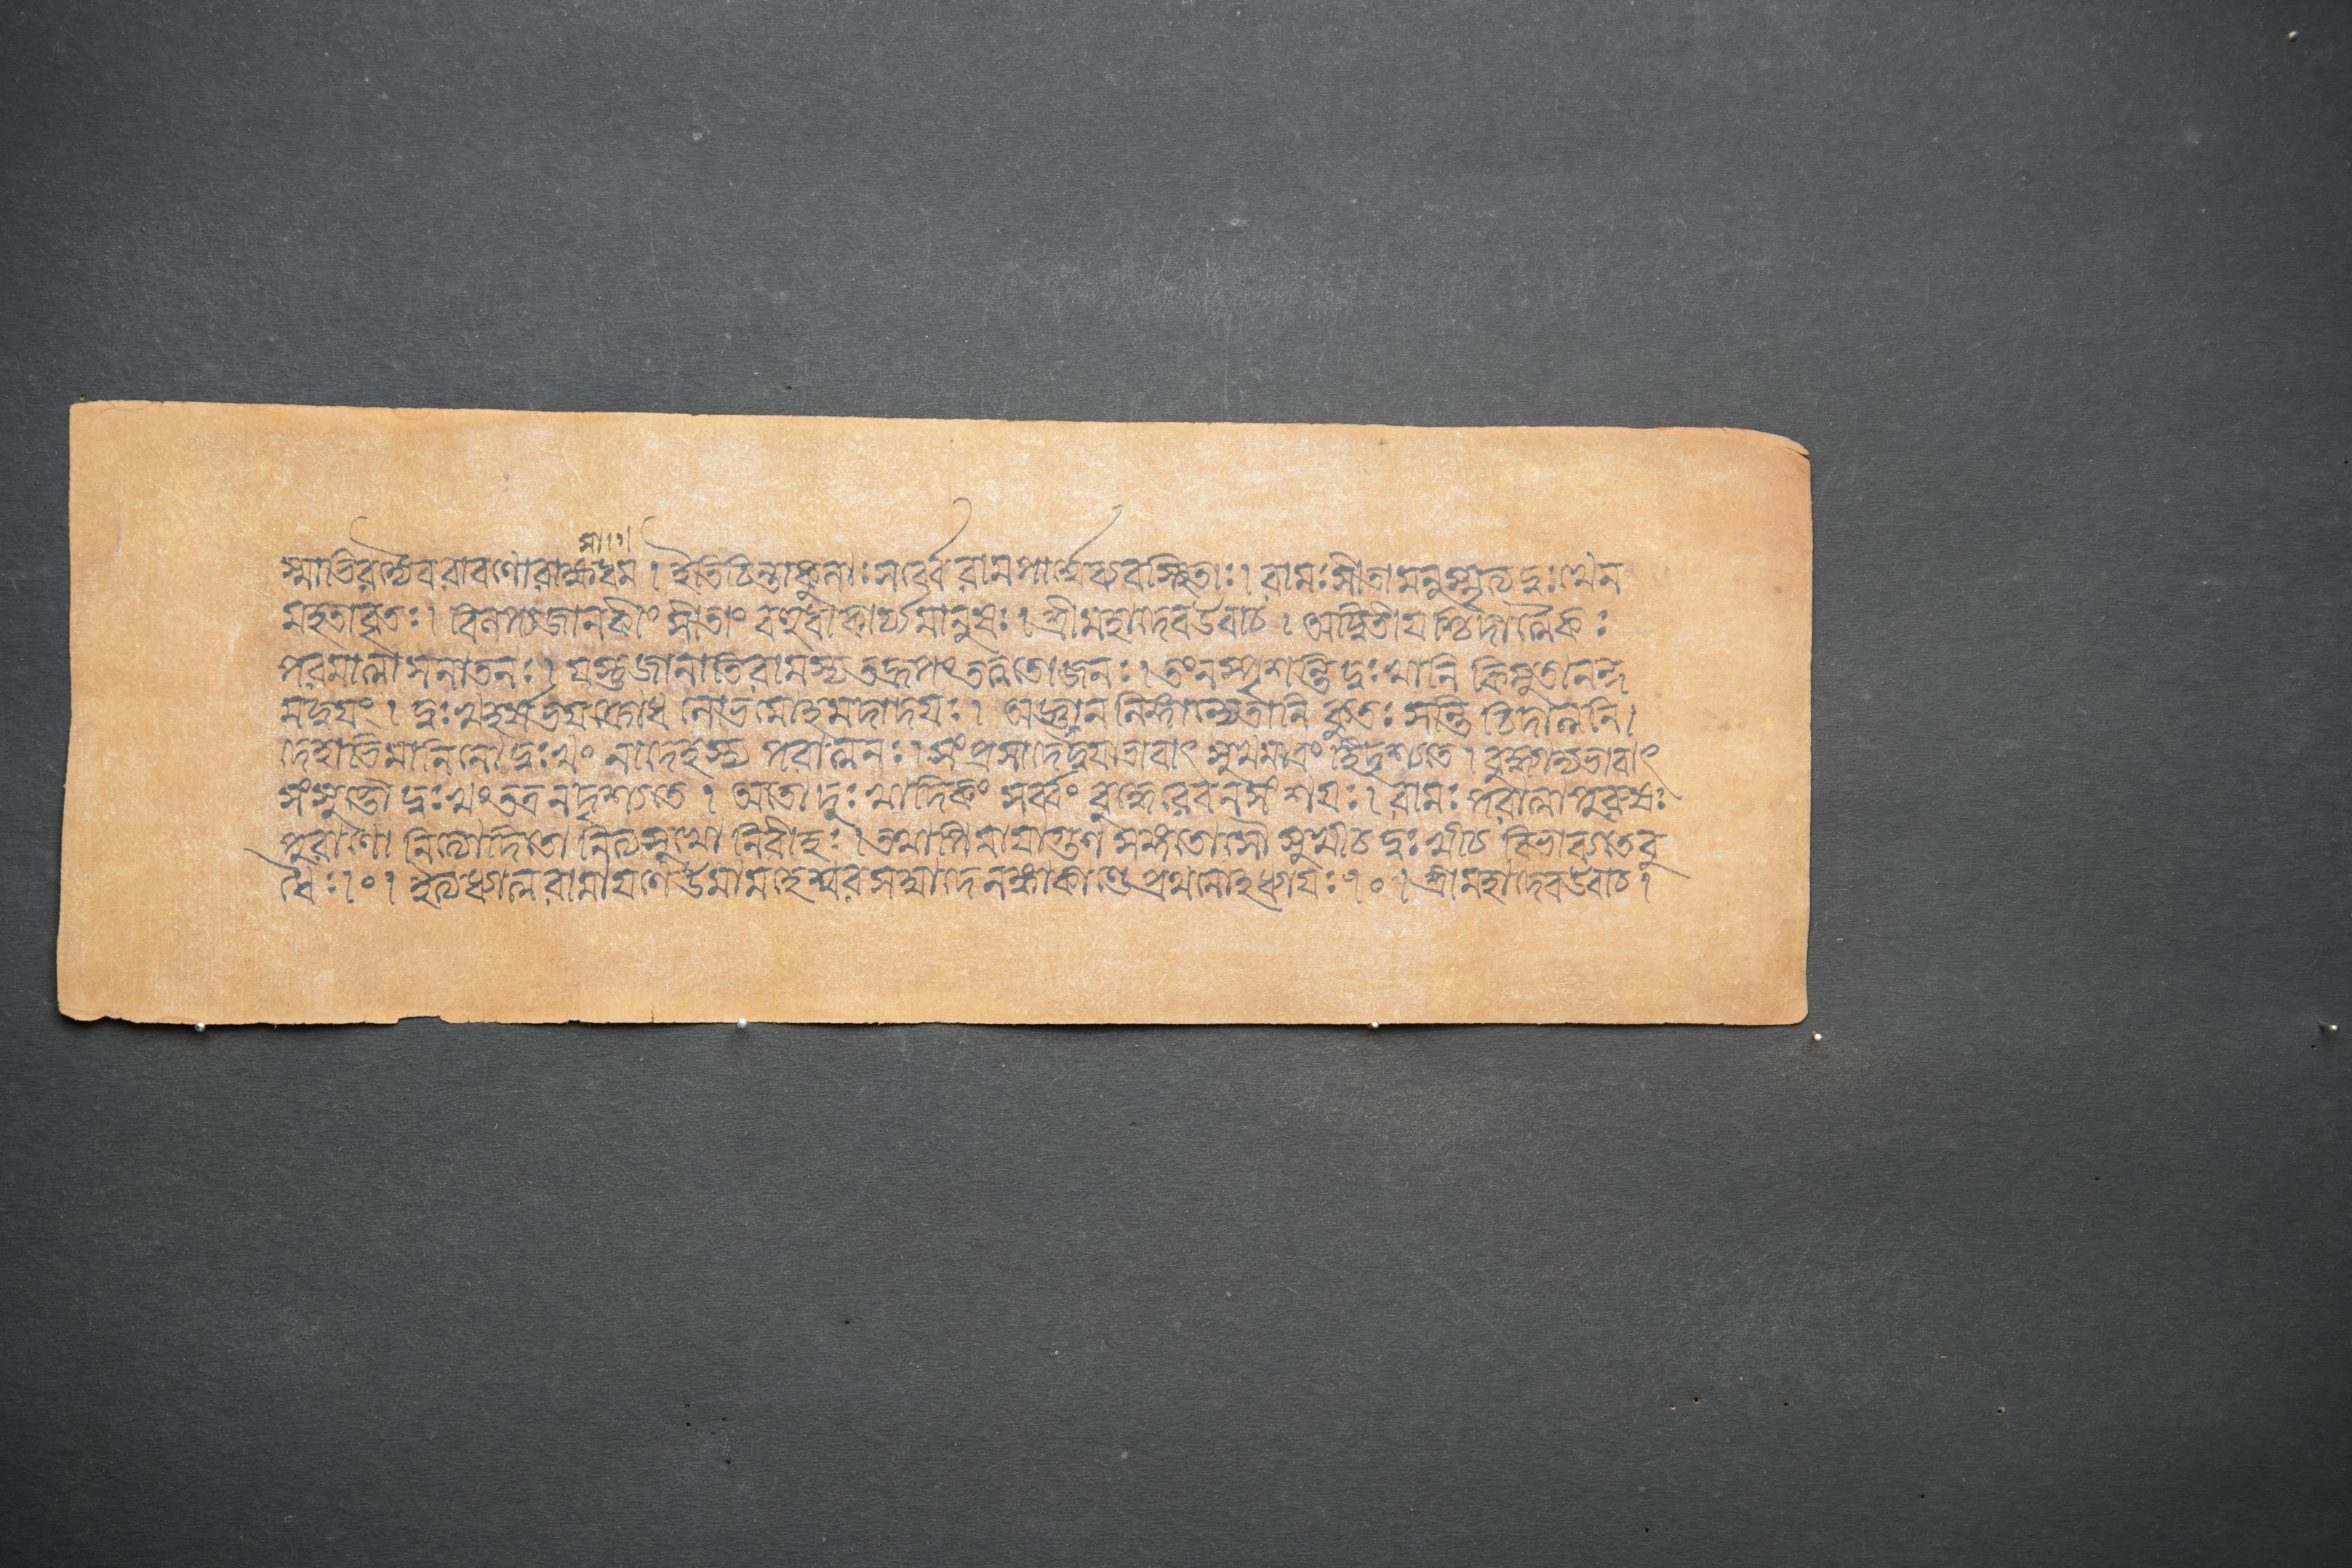 সা।১।
স্মাভিরন্যৈব রাবণো রাক্ষসধম । ইতি চিন্তাকুলাঃ সর্ব্বে রামপার্শ্বেষ্ববস্থিতাঃ । রামঃ সীতামনুস্মৃত্য দুঃখেন
মহতাবৃতঃ । বিলপ্য জানকীং সীতাং বহুধা কার্য্যমানুষঃ । শ্রীমহাদেব উবাচ । অদ্বিতীয়শ্চিদাত্মৈকঃ
পরমাত্মা সনাতনঃ । যস্তু জানাতি রামস্য তদ্রূপং তত্ত্বতো জনঃ । তং ন স্পৃশন্তি দুঃখানি কিমুতানন্দ
মদ্বয়ং । দুঃখহর্ষভয়ক্রোধ লোভমোহমদাদয়ঃ । অজ্ঞান লিঙ্গান্যেতানি কুতঃ সন্তি চিদাত্মনি ।
দেহাভিমানিনো দুঃখং নাদেহস্য পরাত্মনঃ । সংপ্রসাদে দ্বয়াভাবাৎ সুখমাত্রং হি দৃশ্যতে । বুদ্ধ্যাদ্যভাবাৎ
সংসুপ্তৌ দুঃখং তত্র ন দৃশ্যতে । অতো দুঃখাদিকং সর্ব্বং বুদ্ধেরেব ন সংশয়ঃ । রামঃ পরাত্মা পুরুষঃ
পুরাণো নিত্যোদিতো নিত্যসুখো নিরীহঃ । তথাপি মায়াগুণ সঙ্গতোসৌ সুখীচ দুঃখীচ বিভাব্যতেবু
ধৈঃ । ০ । ইত্যধ্যাত্ম রামায়ণে উমামহেশ্বর সম্বাদে লঙ্কাকাণ্ডে প্রথমোহধ্যায়ঃ । ০ । শ্রীমহাদেব উবাচ ।